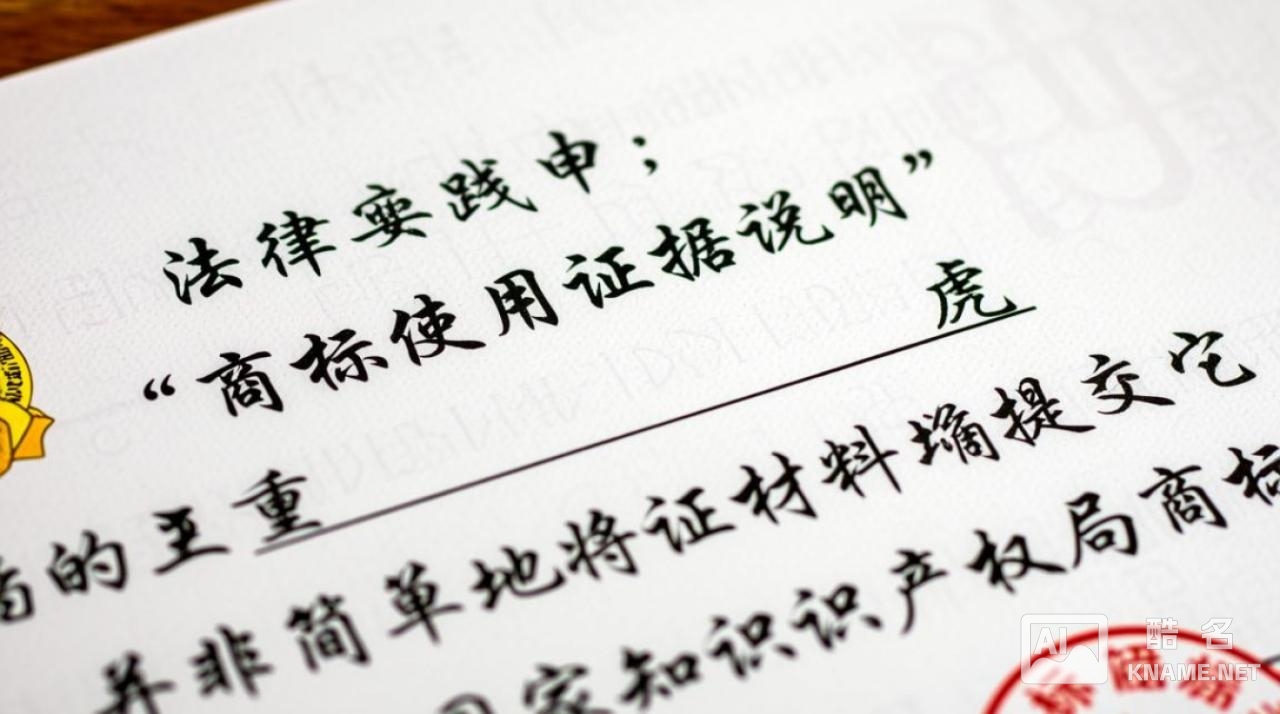 法律践申；
“商标使用证据说明”
虎
的王重
并非简单地将证材料提交它
家知识识产权局商标
AI 酷名
KNAME.NET